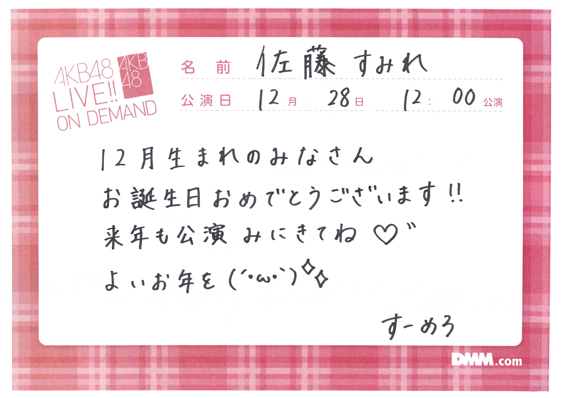 AKB48
LIVE!!
ON DEMAND
AKB
48
名前 佐藤 すみれ
公演日 12月 28日 12:00公演
12月生まれのみなさん
お誕生日おめでとうございます!!
来年も公演 みにきてね♡゛
よいお年を(´・ω・`)✧✧
すーめろ
DMM.com